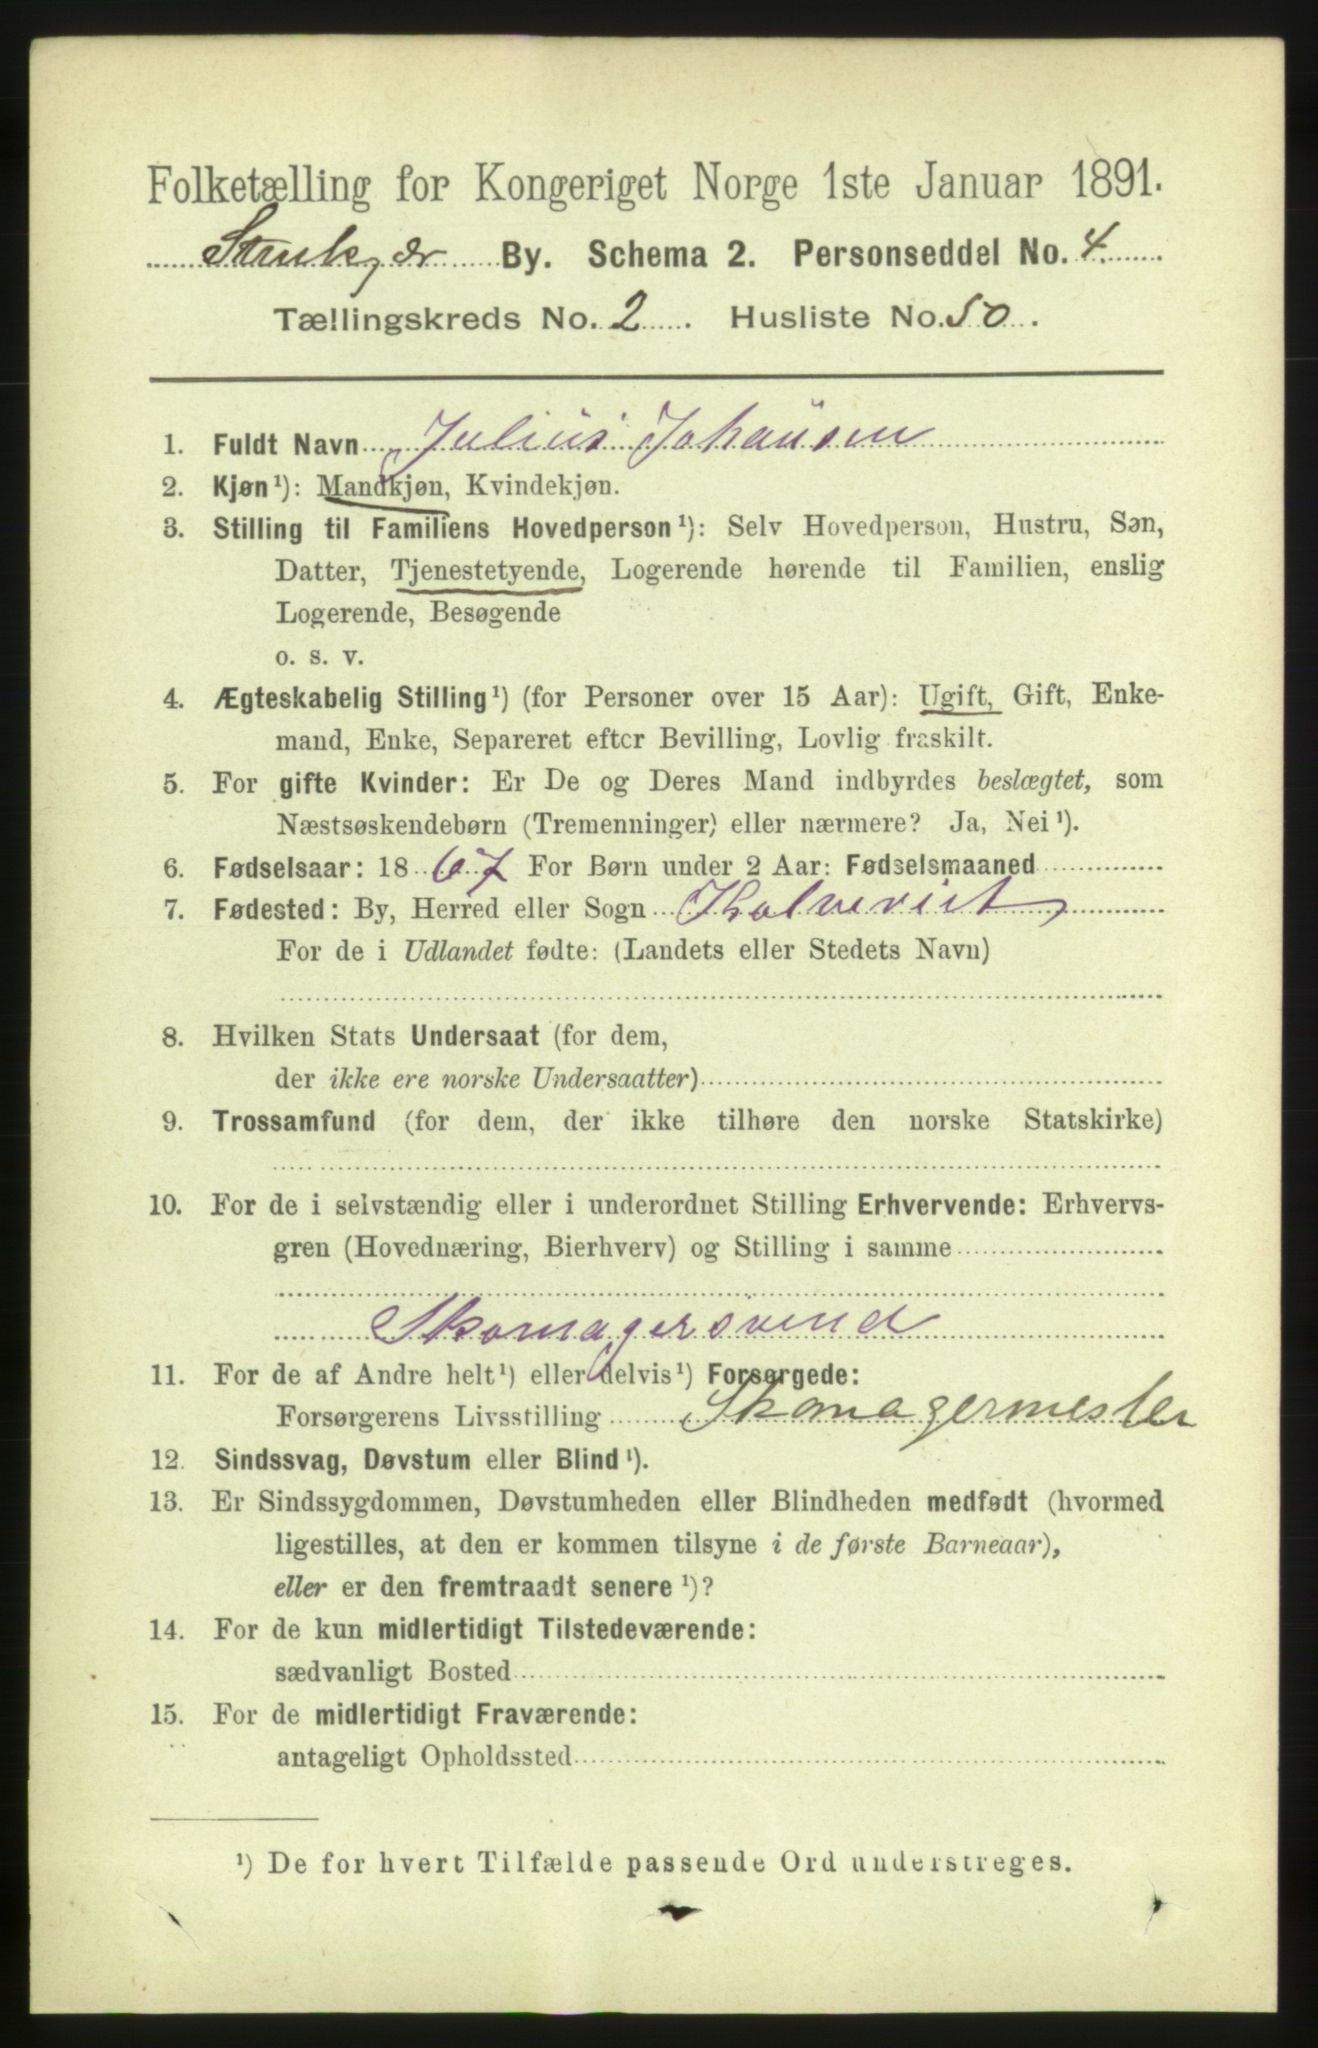 Folketælling for Kongeriget Norge 1ste Januar 1891.
By. Schema 2. Personseddel No. 4
Tællingskreds No. 2. Husliste No. 50.
1. Fuldt Navn Julius Johansen
2. Kjøn¹): Mandkjøn, Kvindekjøn.
3. Stilling til Familiens Hovedperson¹): Selv Hovedperson, Hustru, Søn,
Datter, Tjenestetyende, Logerende hørende til Familien, enslig
Logerende, Besøgende
o. s. v.
4. Ægteskabelig Stilling¹) (for Personer over 15 Aar): Ugift, Gift, Enke-
mand, Enke, Separeret efter Bevilling, Lovlig fraskilt.
5. For gifte Kvinder: Er De og Deres Mand indbyrdes beslægtet, som
Næstsøskendebørn (Tremenninger) eller nærmere? Ja, Nei¹).
6. Fødselsaar: 1867 For Børn under 2 Aar: Fødselsmaaned
7. Fødested: By, Herred eller Sogn
For de i Udlandet fødte: (Landets eller Stedets Navn)
8. Hvilken Stats Undersaat (for dem,
der ikke ere norske Undersaatter)
9. Trossamfund (for dem, der ikke tilhøre den norske Statskirke)
10. For de i selvstændig eller i underordnet Stilling Erhvervende: Erhvervs-
gren (Hovednæring, Bierhverv) og Stilling i samme
Skomagersvend
11. For de af Andre helt¹) eller delvis¹) Forsørgede:
Forsørgerens Livsstilling Skomagermester
12. Sindssvag, Døvstum eller Blind¹).
13. Er Sindssygdommen, Døvstumheden eller Blindheden medfødt (hvormed
ligestilles, at den er kommen tilsyne i de første Barneaar),
eller er den fremtraadt senere¹)?
14. For de kun midlertidigt Tilstedeværende:
sædvanligt Bosted
15. For de midlertidigt Fraværende:
antageligt Opholdssted
¹) De for hvert Tilfælde passende Ord understreges.